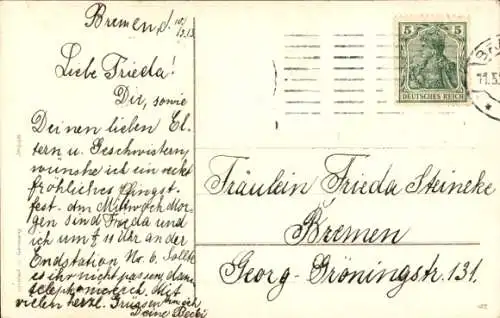 Bremen, d. 10/5.13
Liebe Frieda!
Dir, sowie
Deinen lieben El-
tern u. Geschwistern
wünsche ich ein recht
fröhliches Pfingst-
fest. Am Mittwoch Mor-
gen sind Frieda und
ich um ½ 11 Uhr an der
Endstation No. 6. Sollte
es ihr nicht passen, dann
telephoniere ich. Mit
vielen herzl. Grüssen
Deine
5 5
DEUTSCHES REICH
11.5.
Fräulein Frieda Steineke
Bremen
Georg-Gröningstr. 131.